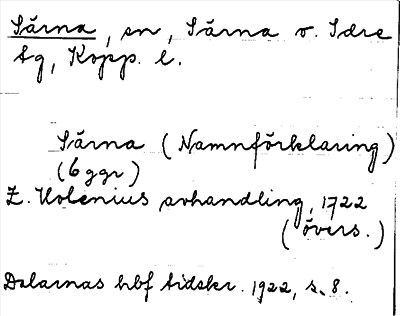 Särna, sn, Särna o. Idre
tg, Kopp. l.
Särna (Namnförklaring)
(6 ggr)
Z. Holenius avhandling, 1722
(övers.)
Dalarnas hbf tidskr. 1922, s. 8.